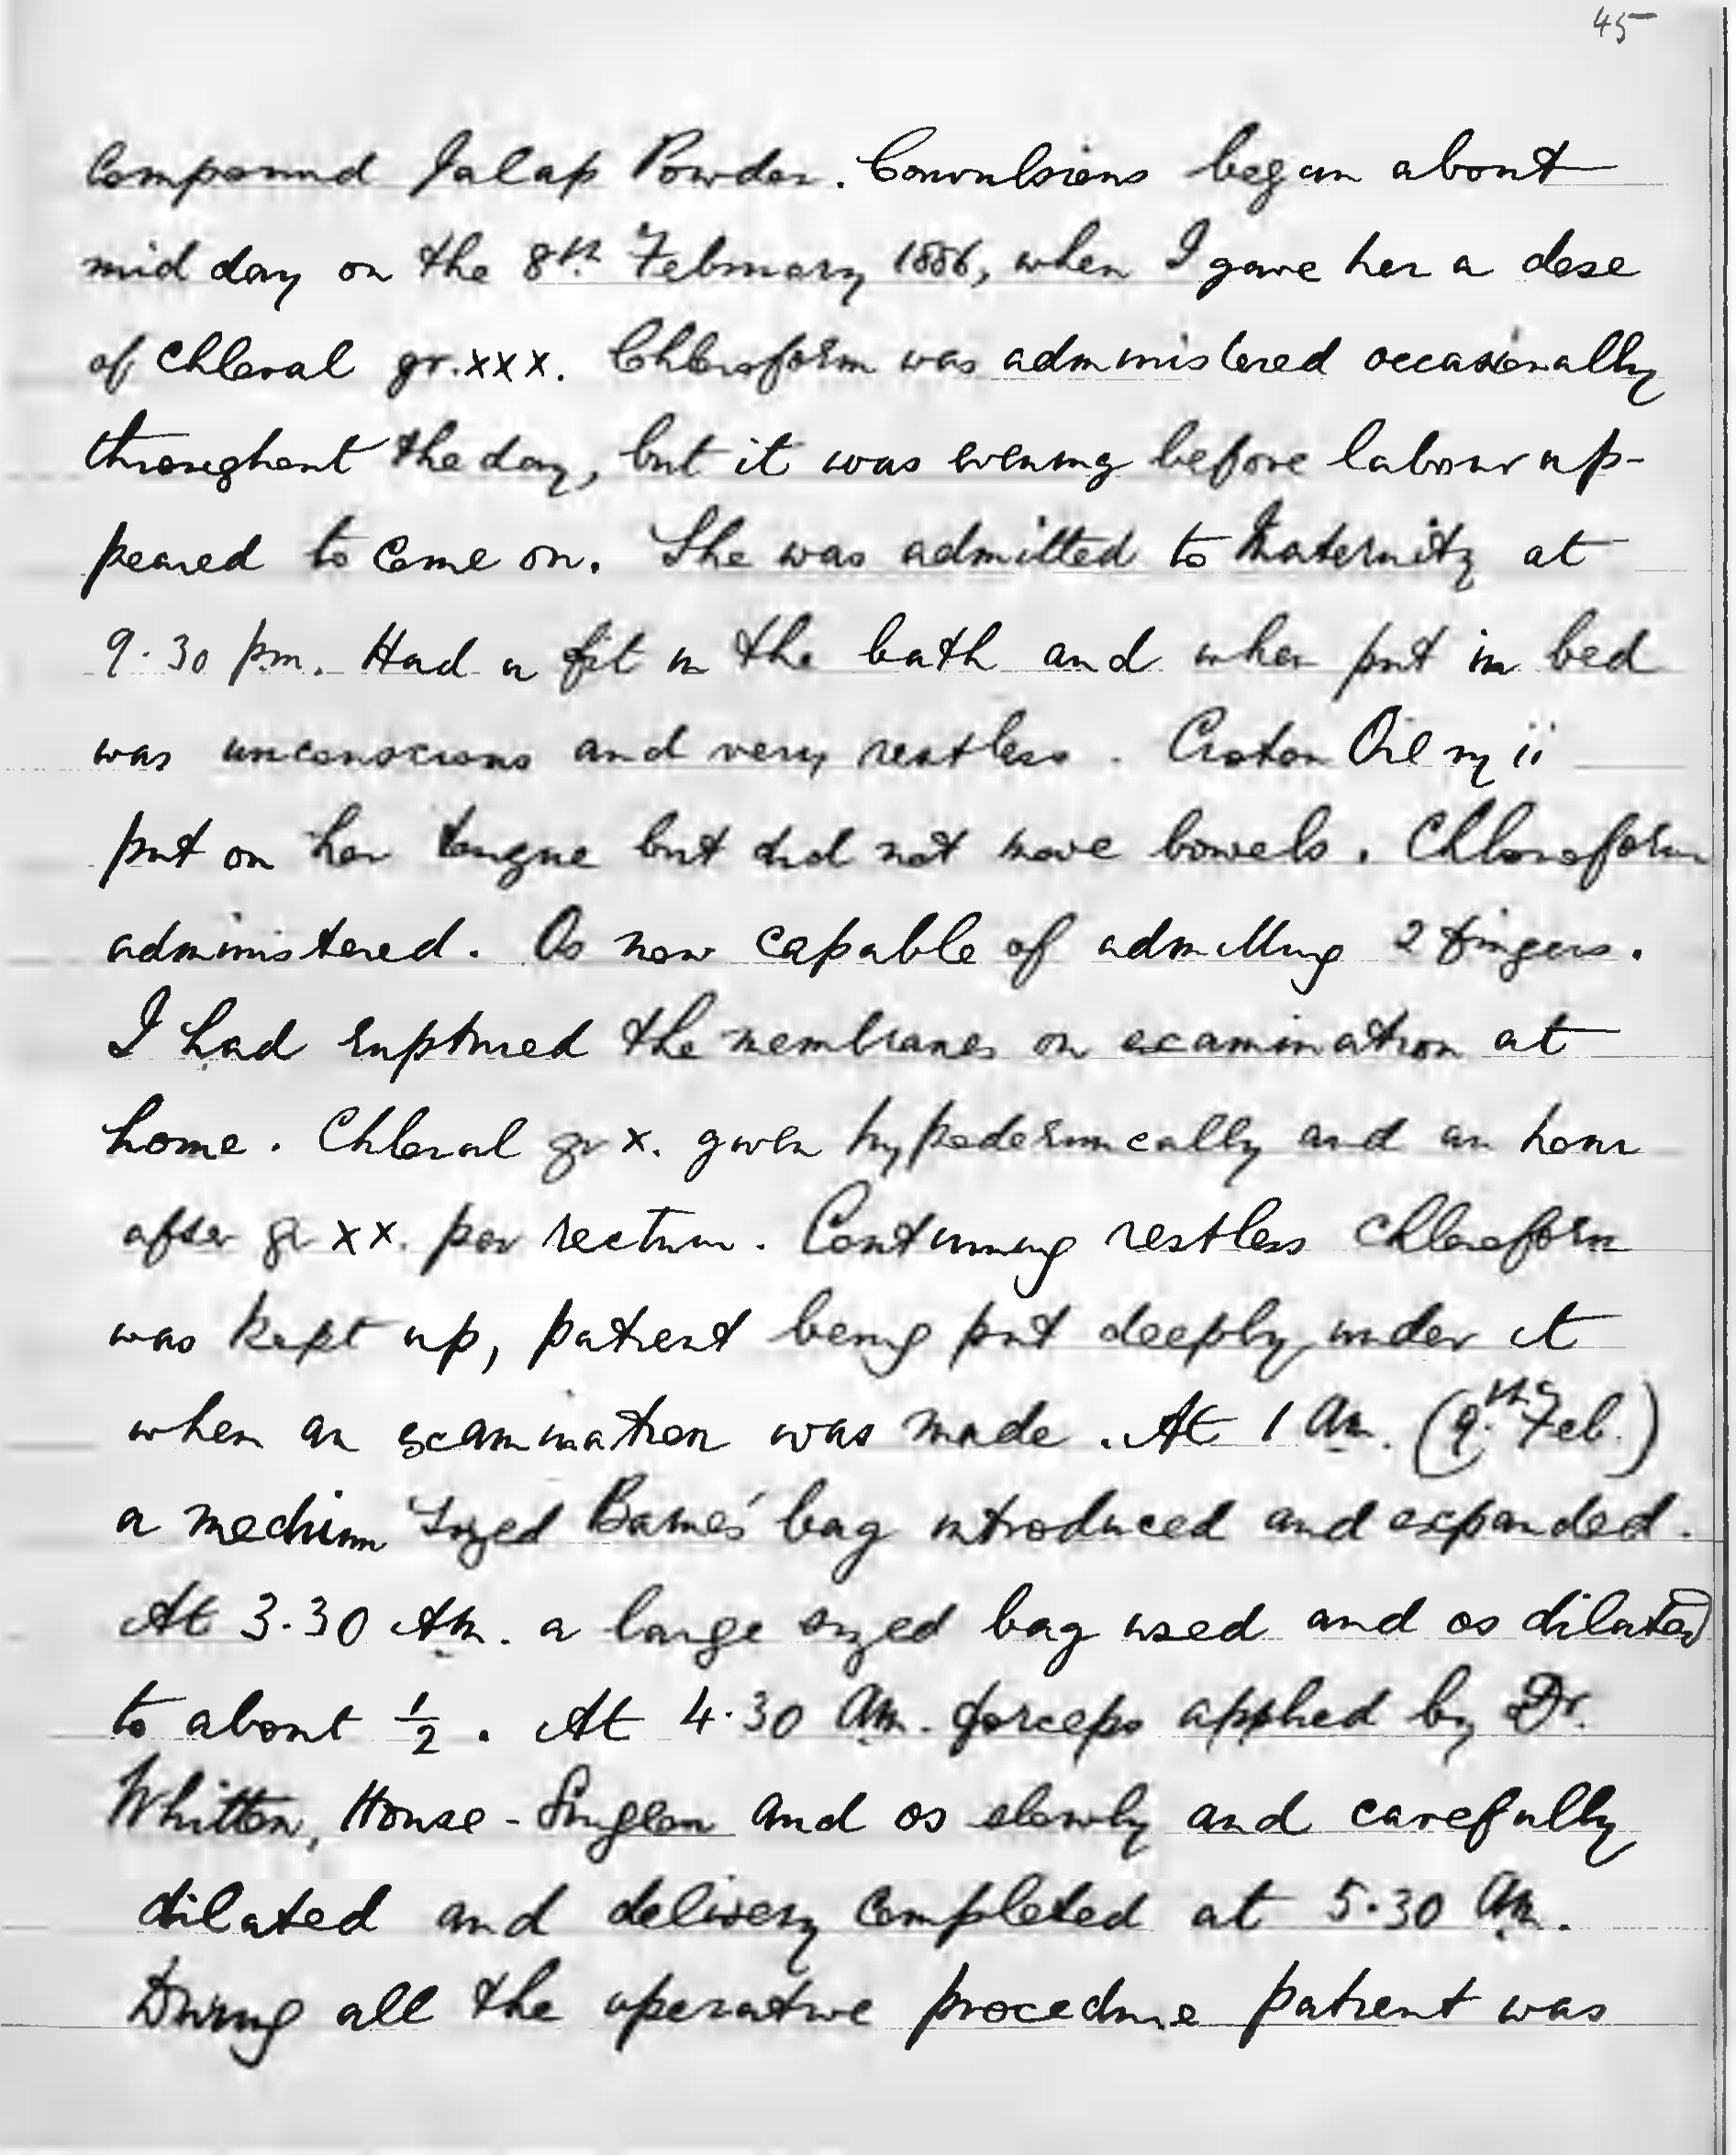 45
Compound Jalap Powder. Convulsions began about
mid day on the 8th February 1886, when I gave her a dose
of Chloral gr.xxx. Chloroform was administered occasionally
throughout the day, but it was evening before labour ap-
peared to come on. She was admitted to Maternity at
9.30 p.m. Had a fit in the bath and when put in bed
was unconscious and very restless. Croton Oil ɱ ii
put on her tongue but did not move bowels. Chloroform
administered. Os now capable of admitting 2 fingers.
I had ruptured the membranes on examination at
home. Chloral gr x. given hypodermically and an hour
after gr xx. per rectum. Continuing restless chloroform
was kept up, patient being put deeply under it
when an examination was made. At 1 Am. (9th Feb.)
a medium sized Barnes' bag introduced and expanded.
At 3.30 Am. a large sized bag used and os dilated
to about 1/2. At 4.30 Am. forceps applied by Dr.
Whitton, House-Surgeon and os slowly and carefully
dilated and delivery completed at 5.30 Am.
During all the operative procedure patient was